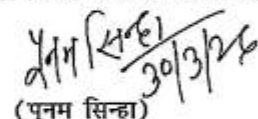 पूनम सिन्हा
30/3/26
(पूनम सिन्हा)